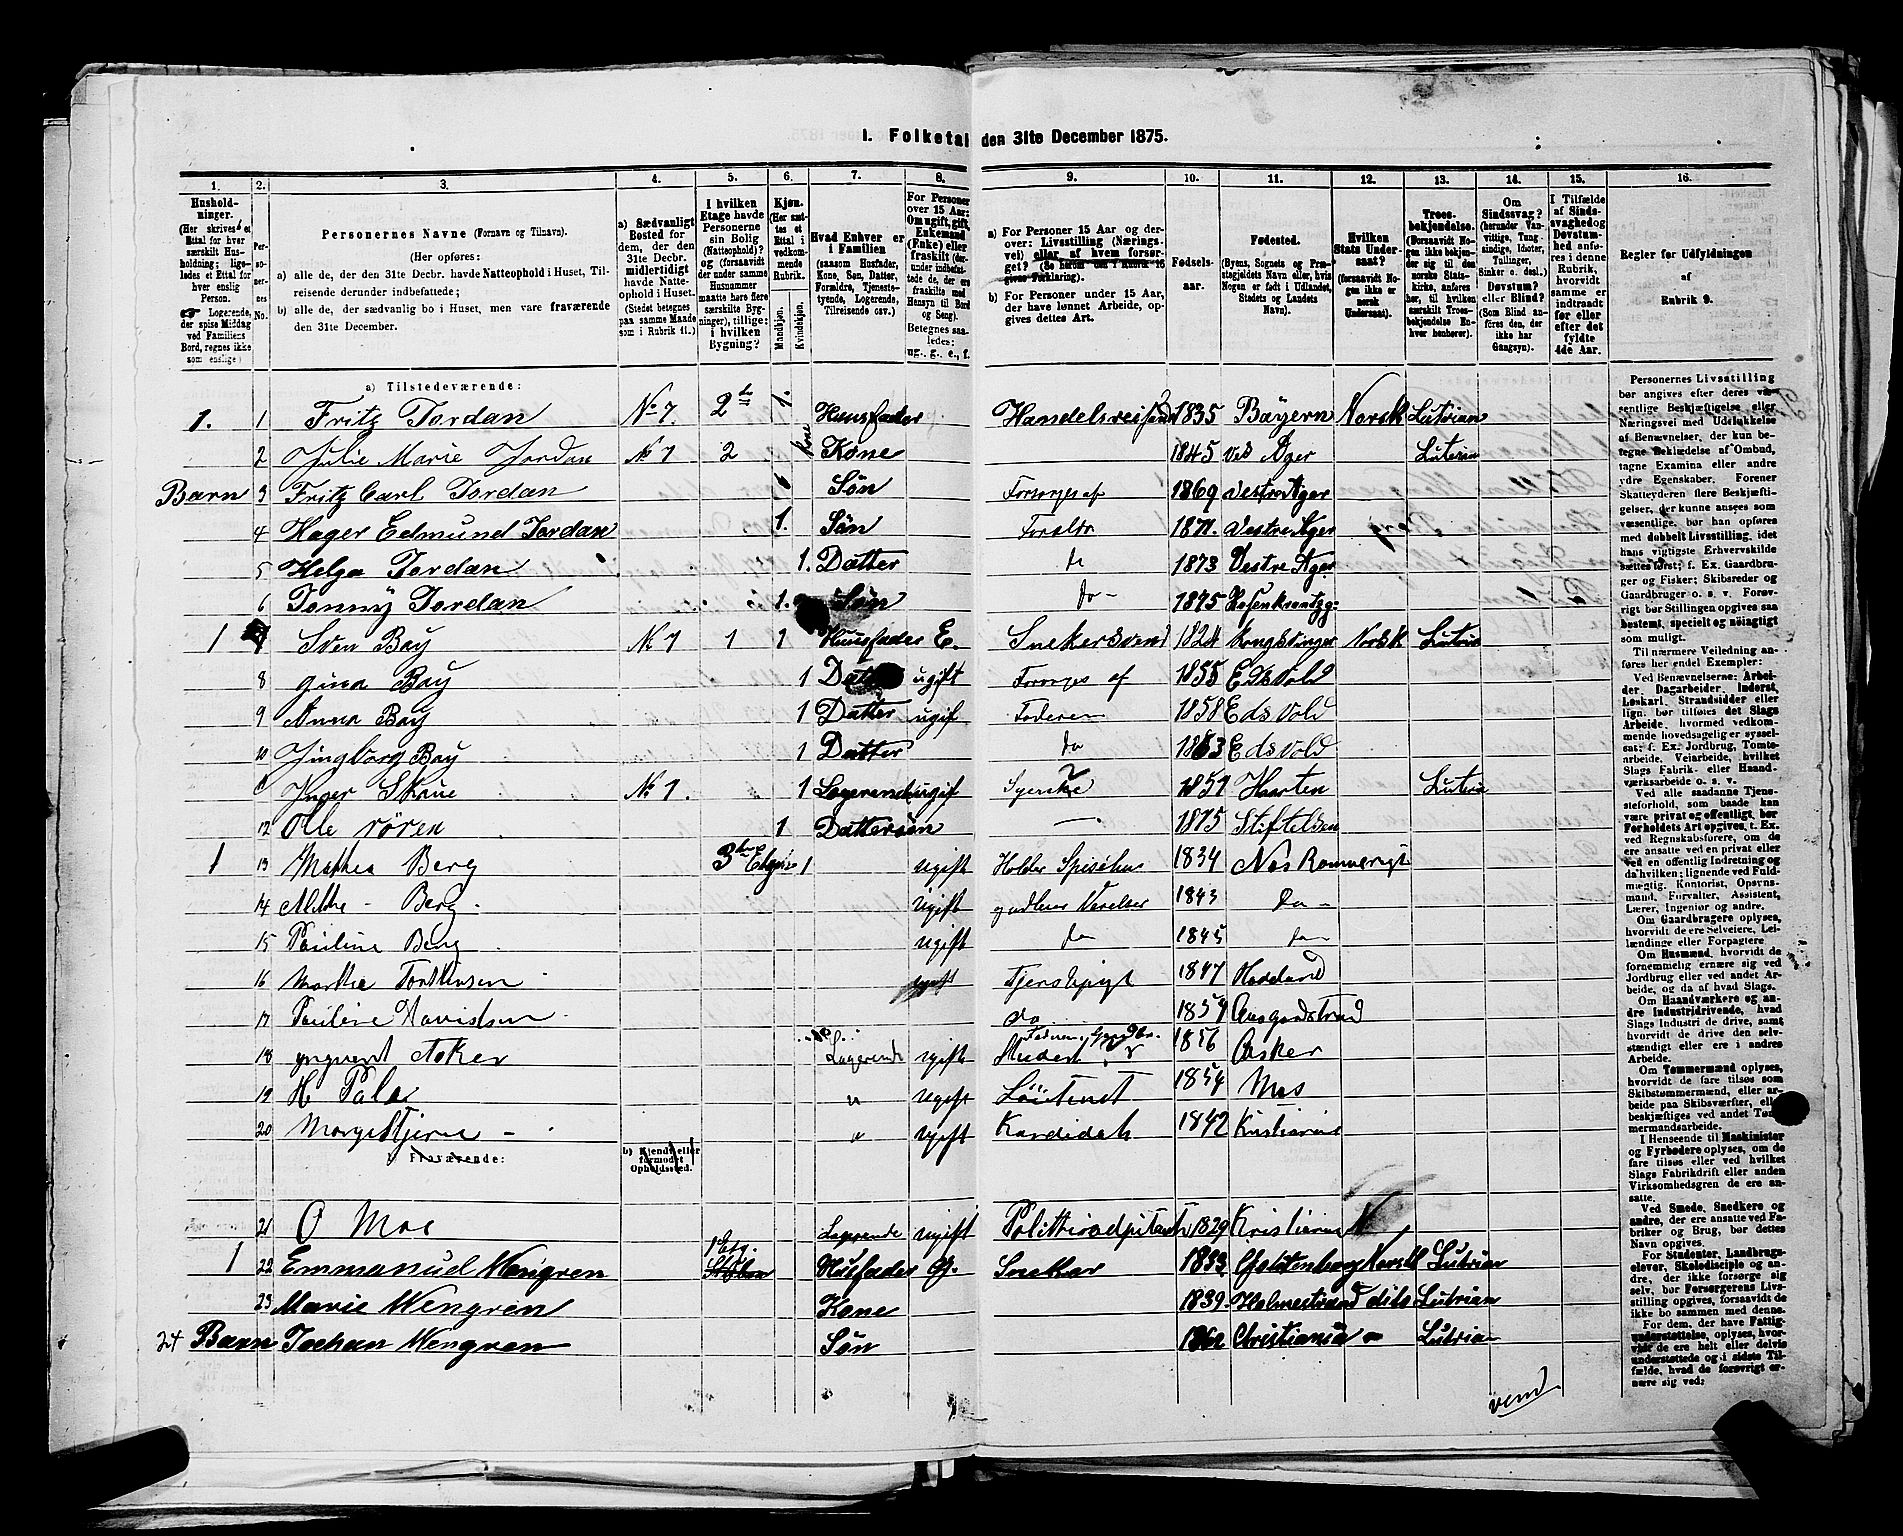 1. Folketal den 31te December 1875.
1. 2. 3. 4. 5. 6. 7. 8. 9. 10. 11. 12. 13. 14. 15. 16.
Husholdninger. (Her skrives et Ettal for hver særskilt Husholdning; ligeledes et Ettal for hver enslig Person. Logerende, der spise Middag ved Familiens Bord, regnes ikke som enslige)
Personernes No.
Personernes Navne (Fornavn og Tilnavn).
(Her opføres:
a) alle de, der den 31te Decbr. havde Natteophold i Huset, Tilreisende derunder indbefattede;
b) alle de, der sædvanlig bo i Huset, men vare fraværende den 31te December.
a) Sædvanligt Bosted for dem, der den 31te Decbr. midlertidigt havde Natteophold i Huset. (Stedet betegnes paa samme Maade som i Rubrik 11.)
I hvilken Etage havde Personerne sin Bolig (Natteophold)? og (forsaavidt der under samme Husnummer maatte høre flere særskilte Bygninger), tillige: i hvilken Bygning?
Kjøn. (Her sættes et Ettal i vedkommende Rubrik. Mandkjøn. Kvindekjøn.
Hvad Enhver er i Familien (saasom Husfader, Kone, Søn, Datter, Forældre, Tjenestetyende, Logerende, Tilreisende osv.)
For Personer over 15 Aar: Om ugift, gift, Enkemand (Enke) eller fraskilt Betegnes saaledes: ug., g., e., f.
a) For Personer 15 Aar og derover: Livsstilling (Næringsvei) eller af hvem forsørget? (Se herom den 7 Rubrik 16 givne Forklaring).
b) For Personer under 15 Aar, der have lønnet Arbeide, opgives dettes Art.
Fødsels-aar.
Fødested. (Byens, Sognets og Præstegjeldets Navn eller, hvis Nogen er født i Udlandet, Stedets og Landets Navn).
Hvilken Stats Undersaat? (forsaavidt Nogen ikke er norsk Undersaat).
Troesbekjendelse. (Forsaavidt Nogen ikke bekjender sig til den norske Statskirke, anføres her, til hvilken særskilt Troesbekjendelse Enhver henhører).
Om Sindssvag? (herunder Vanvittige, Tungsindige, Idioter, Tullinger, Sinker o. desl.) Døvstum? eller Blind? (Som Blind anføres den, der ikke har Gangsyn).
I Tilfælde af Sindssvaghed og Døvstumhed anføres i denne Rubrik, hvorvidt samme er indtraadt før eller efter det fyldte 4de Aar.
Regler før Udfyldningen af Rubrik 9.
a) Tilstedeværende:
1. 1 Fritz Jordan No 7. 2de 1. Huusfader Handelsreisende 1835 Bayern Norsk Lutrian
2 Julie Marie Jordan No 7 2 Kone 1845 Ved Ager Luterin
Barn 3 Fritz Carl Jordan Søn Forsorges af 1869 Vestre Ager
4 Hager Edmund Jordan 1. Søn 1871. Vestre Ager
5 Helga Jordan 1. Datter 1873 Vestre Ager
6 Tonny Jordan 1. Søn do - 1875
1 7 Sven Bay No 7 1 1 Huusfader E. Snekersvend 1824 Kongsvinger Norsk Lutrin
8 gina Bay 1 Datter ugift Forsorges af 1855 Edsvold
9 Anna Bay 1 Datter ugif Foderen 1858 Edsvold
10 Jingborg Bay 1 Datter do 1863 Edsvold
Jnger Skaue No 7. 1 Logerende ugif Syerske 1851 Lutrin
12 Olle 1 Dattersøn 1875 Stiftelsen
1 13 Mathea Berg 3die Etage 1 ugift Holder Spisehus 1834 Nes Romerige
14 Berg. ugift og udleier Værelser 1843 do -
15 Pauline Berg ugift do 1845 do
16 Marthe ugift 1847 Hadeland
17 Pauline Davidsen do
18 Asker Logerende ugift Student 1856 Asker
19 H " ugift 1854 Mos
20 " ugift Kandidat 1842 Kristiania
b) Fraværende:
b) Kjendt eller formodet Opholdssted.
21 O Moe Logerende ugift 1829 Kristiania N
1 22 Emmanuel Wengren 1 Etg. Husfader G. Snekar 1833 Norsk Lutrian
23 Marie Wengren Kone 1839. Holmestrand dito Lutrian
24 Barn Johan Wengren Søn 1862 Christiania Lutrian
vend
Personernes Livsstilling bør angives efter deres væsentlige Beskjæftigelse eller Næringsvei med Udelukkelse af Benævnelser, der kun betegne Beklædelse af Ombud, tagne Examina eller andre ydre Egenskaber. Forener Skatteyderen flere Beskjæftigelser, der kunne ansees som væsentlige, bør han opføres med dobbelt Livsstilling, idet hans vigtigste Erhvervskilde sættes først; f. Ex. Gaardbruger og Fisker; Skibsreder og Gaardbruger o. s. v. Forøvrigt bør Stillingen opgives saa bestemt, specielt og nøiagtigt som muligt.
Til nærmere Veiledning anføres her endel Exempler:
Ved Benævnelserne: Arbeider, Dagarbeider, Inderst, Løskarl, Strandsidder eller lign. bør tilføies det Slags Arbeide, hvormed vedkommende hovedsagelig er sysselsat; f. Ex. Jordbrug, Tomtearbeide, Veiarbeide, hvilket Slags Fabrik- eller Haandværksarbeide o. s. v.
Ved alle saadanne Tjenesteforhold, som baade kan være privat og offentligt, bør Forholdets Art opgives, f. Ex. ved Regnskabsførere, om de ere ansatte ved en privat eller ved en offentlig Indretning og da hvilken; lignende ved Fuldmægtig, Kontorist, Opsynsmand, Forvalter, Assistent, Lærer, Ingeniør og andre.
Om Gaardbrugere oplyses, hvorvidt de ere Selveiere, Leilændinge eller Forpagtere
Om Husmænd, hvorvidt de fornemmelig ernære sig ved Jordbrug eller ved andet Arbeide, og da af hvad Slags.
Om Haandværkere og andre Industridrivende, hvad Slags Industri de drive, samt hvorvidt de drive den selvstændigt eller ere i andres Arbeide.
Om Tømmermænd oplyses, hvorvidt de fare tilsøs som Skibstømmermænd, eller arbeide paa Skibsværfter, eller beskjæftiges ved andet Tømmermandsarbeide.
I Henseende til Maskinister og Fyrbødere oplyses, om de fare tilsøs eller ved hvilket Slags Fabrikdrift eller anden Virksomhedsgren de ere ansatte.
Ved Smede, Snedkere og andre, der ere ansatte ved Fabriker og Brug, bør dettes Navn opgives.
For Studenter, Landbrugselever, Skoledisciple og andre, der ikke forsørge sig selv, bør Forsørgerens Livsstilling opgives, forsaavidt de ikke bo sammen med denne.
For dem, der have Fattigunderstøttelse, oplyses, hvorvidt de ere helt eller delvis understøttede og i sidste Tilfælde, hvad de forøvrigt ernære sig ved: